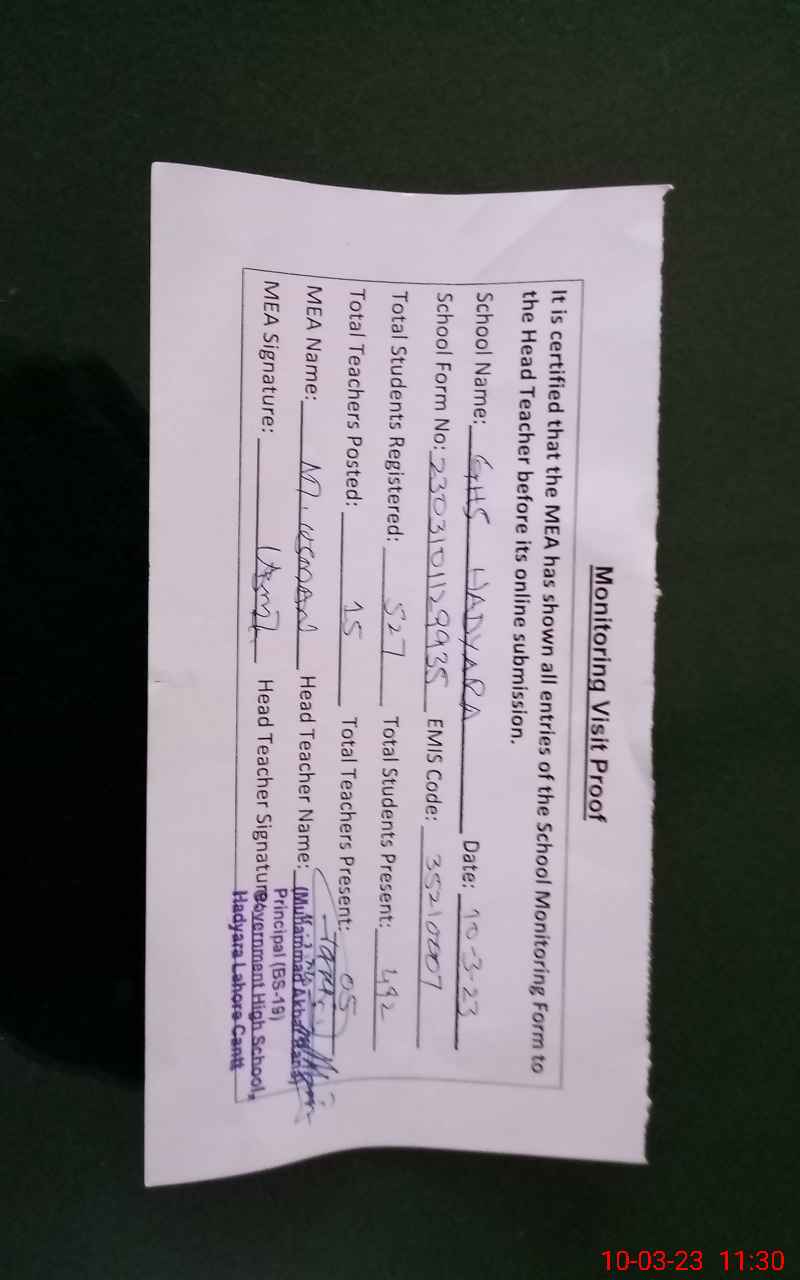 Monitoring Visit Proof
It is certified that the MEA has shown all entries of the School Monitoring Form to
the Head Teacher before its online submission.
School Name: GHS HADYARA Date: 10-3-23
School Form No: 2303101129935 EMIS Code: 35210007
Total Students Registered: 527 Total Students Present: 492
Total Teachers Posted: 15 Total Teachers Present: 05
MEA Name: M. USMAN Head Teacher Name:
MEA Signature: Usman Head Teacher Signature
(Muhammad Akbar
Principal (BS-19)
Government High School,
Hadyara Lahore Cantt
10-03-23 11:30